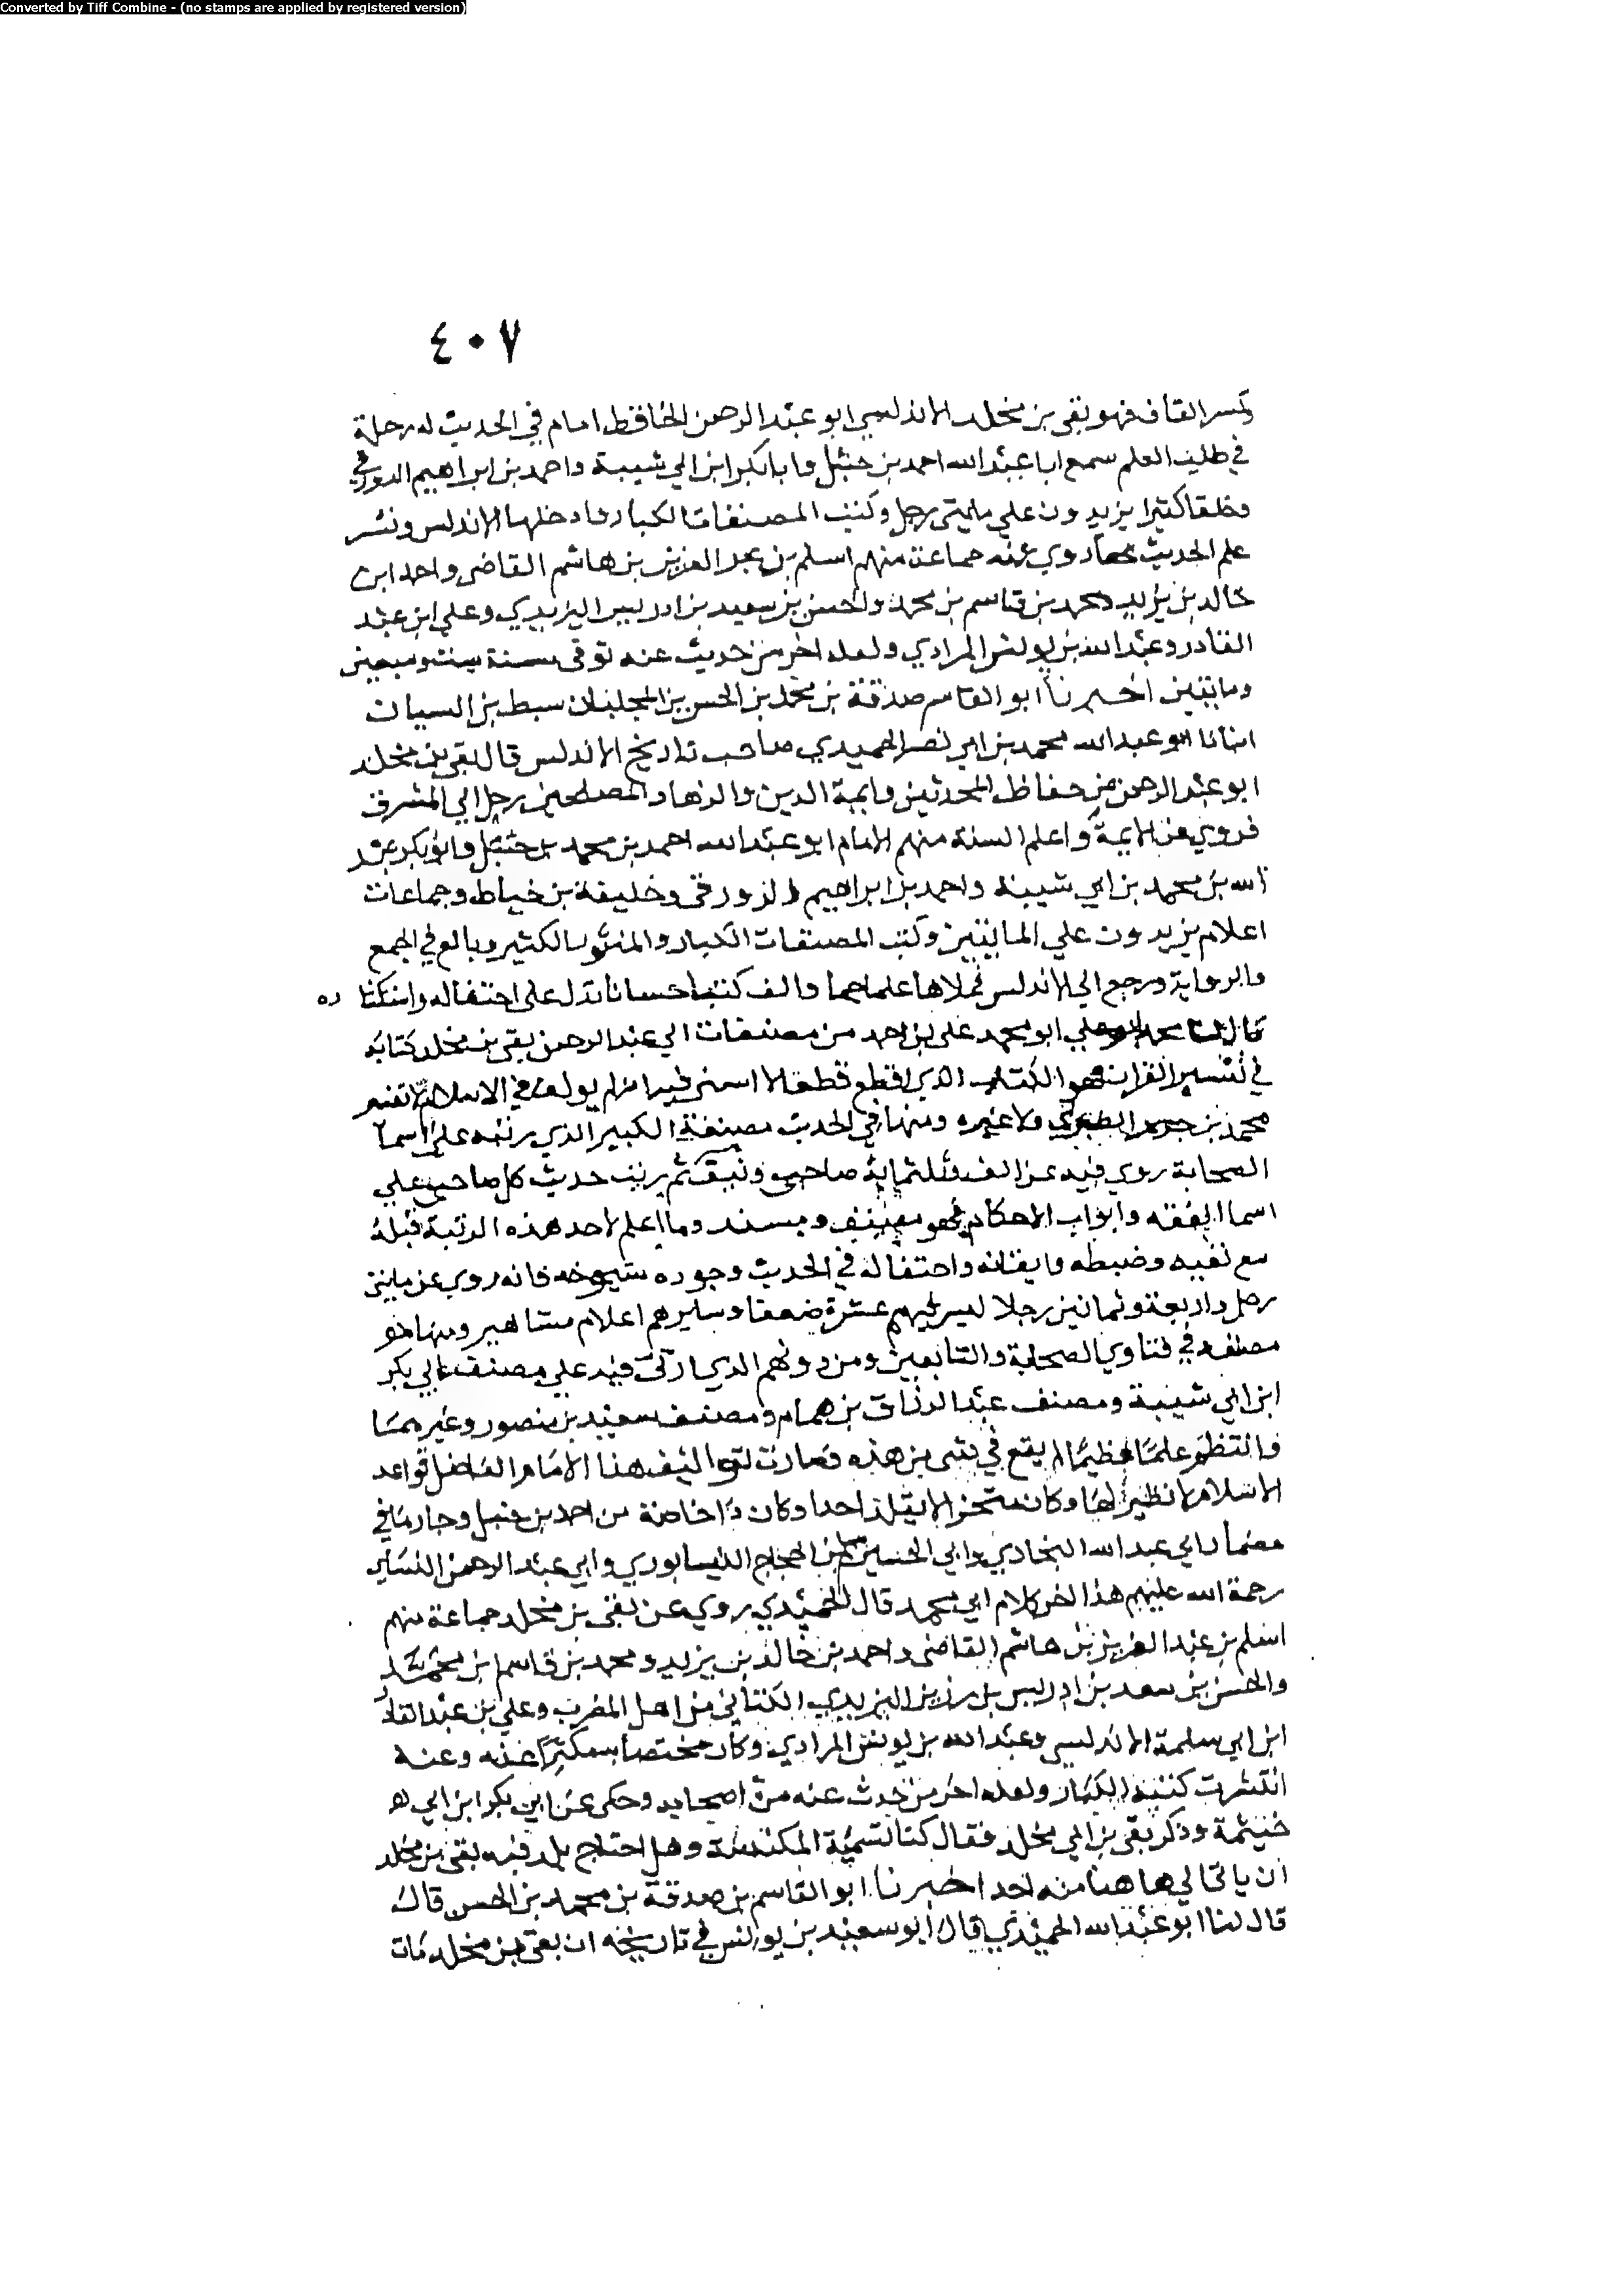 Converted by Tiff Combine - (no stamps are applied by registered version)
٤٠٧
وكسر القاف فهو بقي بن مخلد الاندلسي ابو عبد الرحمن الحافظ امام في الحديث له رحلة
في طلب العلم سمع ابا عبد الله احمد بن حنبل وابا بكر ابن ابي شيبة واحمد بن ابراهيم الدورقي
وخلقا كثيرا يزيدون على مايتى رجل وكتب المصنفات الكبار وادخلها الاندلس ونشر
علم الحديث بها روي عنه جماعة منهم اسلم بن عبد العزيز بن هاشم القاضى واحد ابن
خالد بن يزيد ومحمد بن قاسم بن محمد والحسن بن سعيد بن ادريس اليزبيدي وعلي ابن عبد
القادر وعبد الله بن يونس المرادي ولعله اخر من حديث عنه توفى سنة ست وسبعين
وماتيين اخبرنا ابو القاسم صدقة بن محمد بن الحسن بن المجلبان سبط بن السياف
انبانا ابو عبد الله محمد بن ابي نصر الحميدي صاحب تاريخ الاندلس قال بقي بن مخلد
ابو عبد الرحمن من حفاظ المحدثين وايمة الدين والزهاد والصالحين رحل الي المشرق
فروي عن الايمة واعلم السنة منهم الامام ابو عبد الله احمد بن محمد بن حنبل وابو بكر عبد
الله بن محمد بن ابي شيبة واحمد بن ابراهيم الدورقى وخليفة بن خياط وجماعات
اعلام يزيدون علي الماتيين وكتب المصنفات الكبار والمنثور الكثير وبالغ في الجمع
والرواية ورجع الي الاندلس فملاها علما جما والف كتبا حسانا تدل على احتفاله واستكثا ره
قال لنا ابو محمد علي بن احمد من مصنفات ابي عبد الرحمن بقي بن مخلد كتابه
في تفسير القران فهو الكتاب الذي اقطع قطعا لا استثنى فيه انه لم يولف في الاسلام مثله ولا تفسير
محمد بن جرير الطبري ولا غيره ومنها في الحديث مصنفه الكبير الذي رتبه على اسما
الصحابة روي فيه عن الف وثلثماية صاحب ونيف ثم رتب حديث كل صاحب علي
اسما الفقه وابواب الاحكام فهو مصنف ومسند وما اعلم لاحد هذه الرتبة قبله
مع ثقته وضبطه وايقانه واحتفاله في الحديث وجوده شيوخه فانه روي عن مايتى
رجل واربعة وثمانين رجلا ليس فيهم عشرة ضعفا وسايرهم اعلام مشاهير ومنها هو
مصنفه في فتاوي الصحابة والتابعين ومن دونهم الذي اربى فيه علي مصنف ابي بكر
ابن ابي شيبة ومصنف عبد الرزاق بن همام ومصنف سعيد بن منصور وغيرهما
وانتظم علما عظيما لم يقع في شى من هذه فصارت تواليف هذا الامام الفاضل قواعد
الاسلام لا نظير لها وكان متخيرا لا يقلد احدا وكان ذا خاصة من احمد بن حنبل وجاريا في
مضمار ابي عبد الله البخاري وابي الحسين مسلم بن الحجاج النيسابوري وابي عبد الرحمن النسائى
رحمة الله عليهم هذا اخر كلام ابي محمد قال الحميدي روي عن بقى بن مخلد جماعة منهم
اسلم بن عبد العزيز بن هاشم القاضى واحمد بن خالد بن يزيد ومحمد بن قاسم ابن محمد
والحسن بن سعد بن ادريس بن رزين اليزبيدي الكتاني من اهل المغرب وعلي بن عبد القادر
ابن ابي سلمة الاندلسي وعبد الله بن يونس المرادي وكان مختصا به مكثرا عنه وعنه
انتشرت كتبه الكبار ولعله اخر من حدث عنه من اصحابه وحكى عن ابي بكر ابن ابي
خيثمة وذكر بقي بن ابي مخلد فقال كنا نسميه المكنسة وهل احتاج بلد فيه بقي بن مخلد
ان ياتى الي هاهنا منه احد اخبرنا ابو القاسم بن صدقة بن محمد بن الحسن قال
قال لنا ابو عبد الله الحميدي قال ابو سعيد بن يونس في تاريخه ان بقى بن مخلد مات